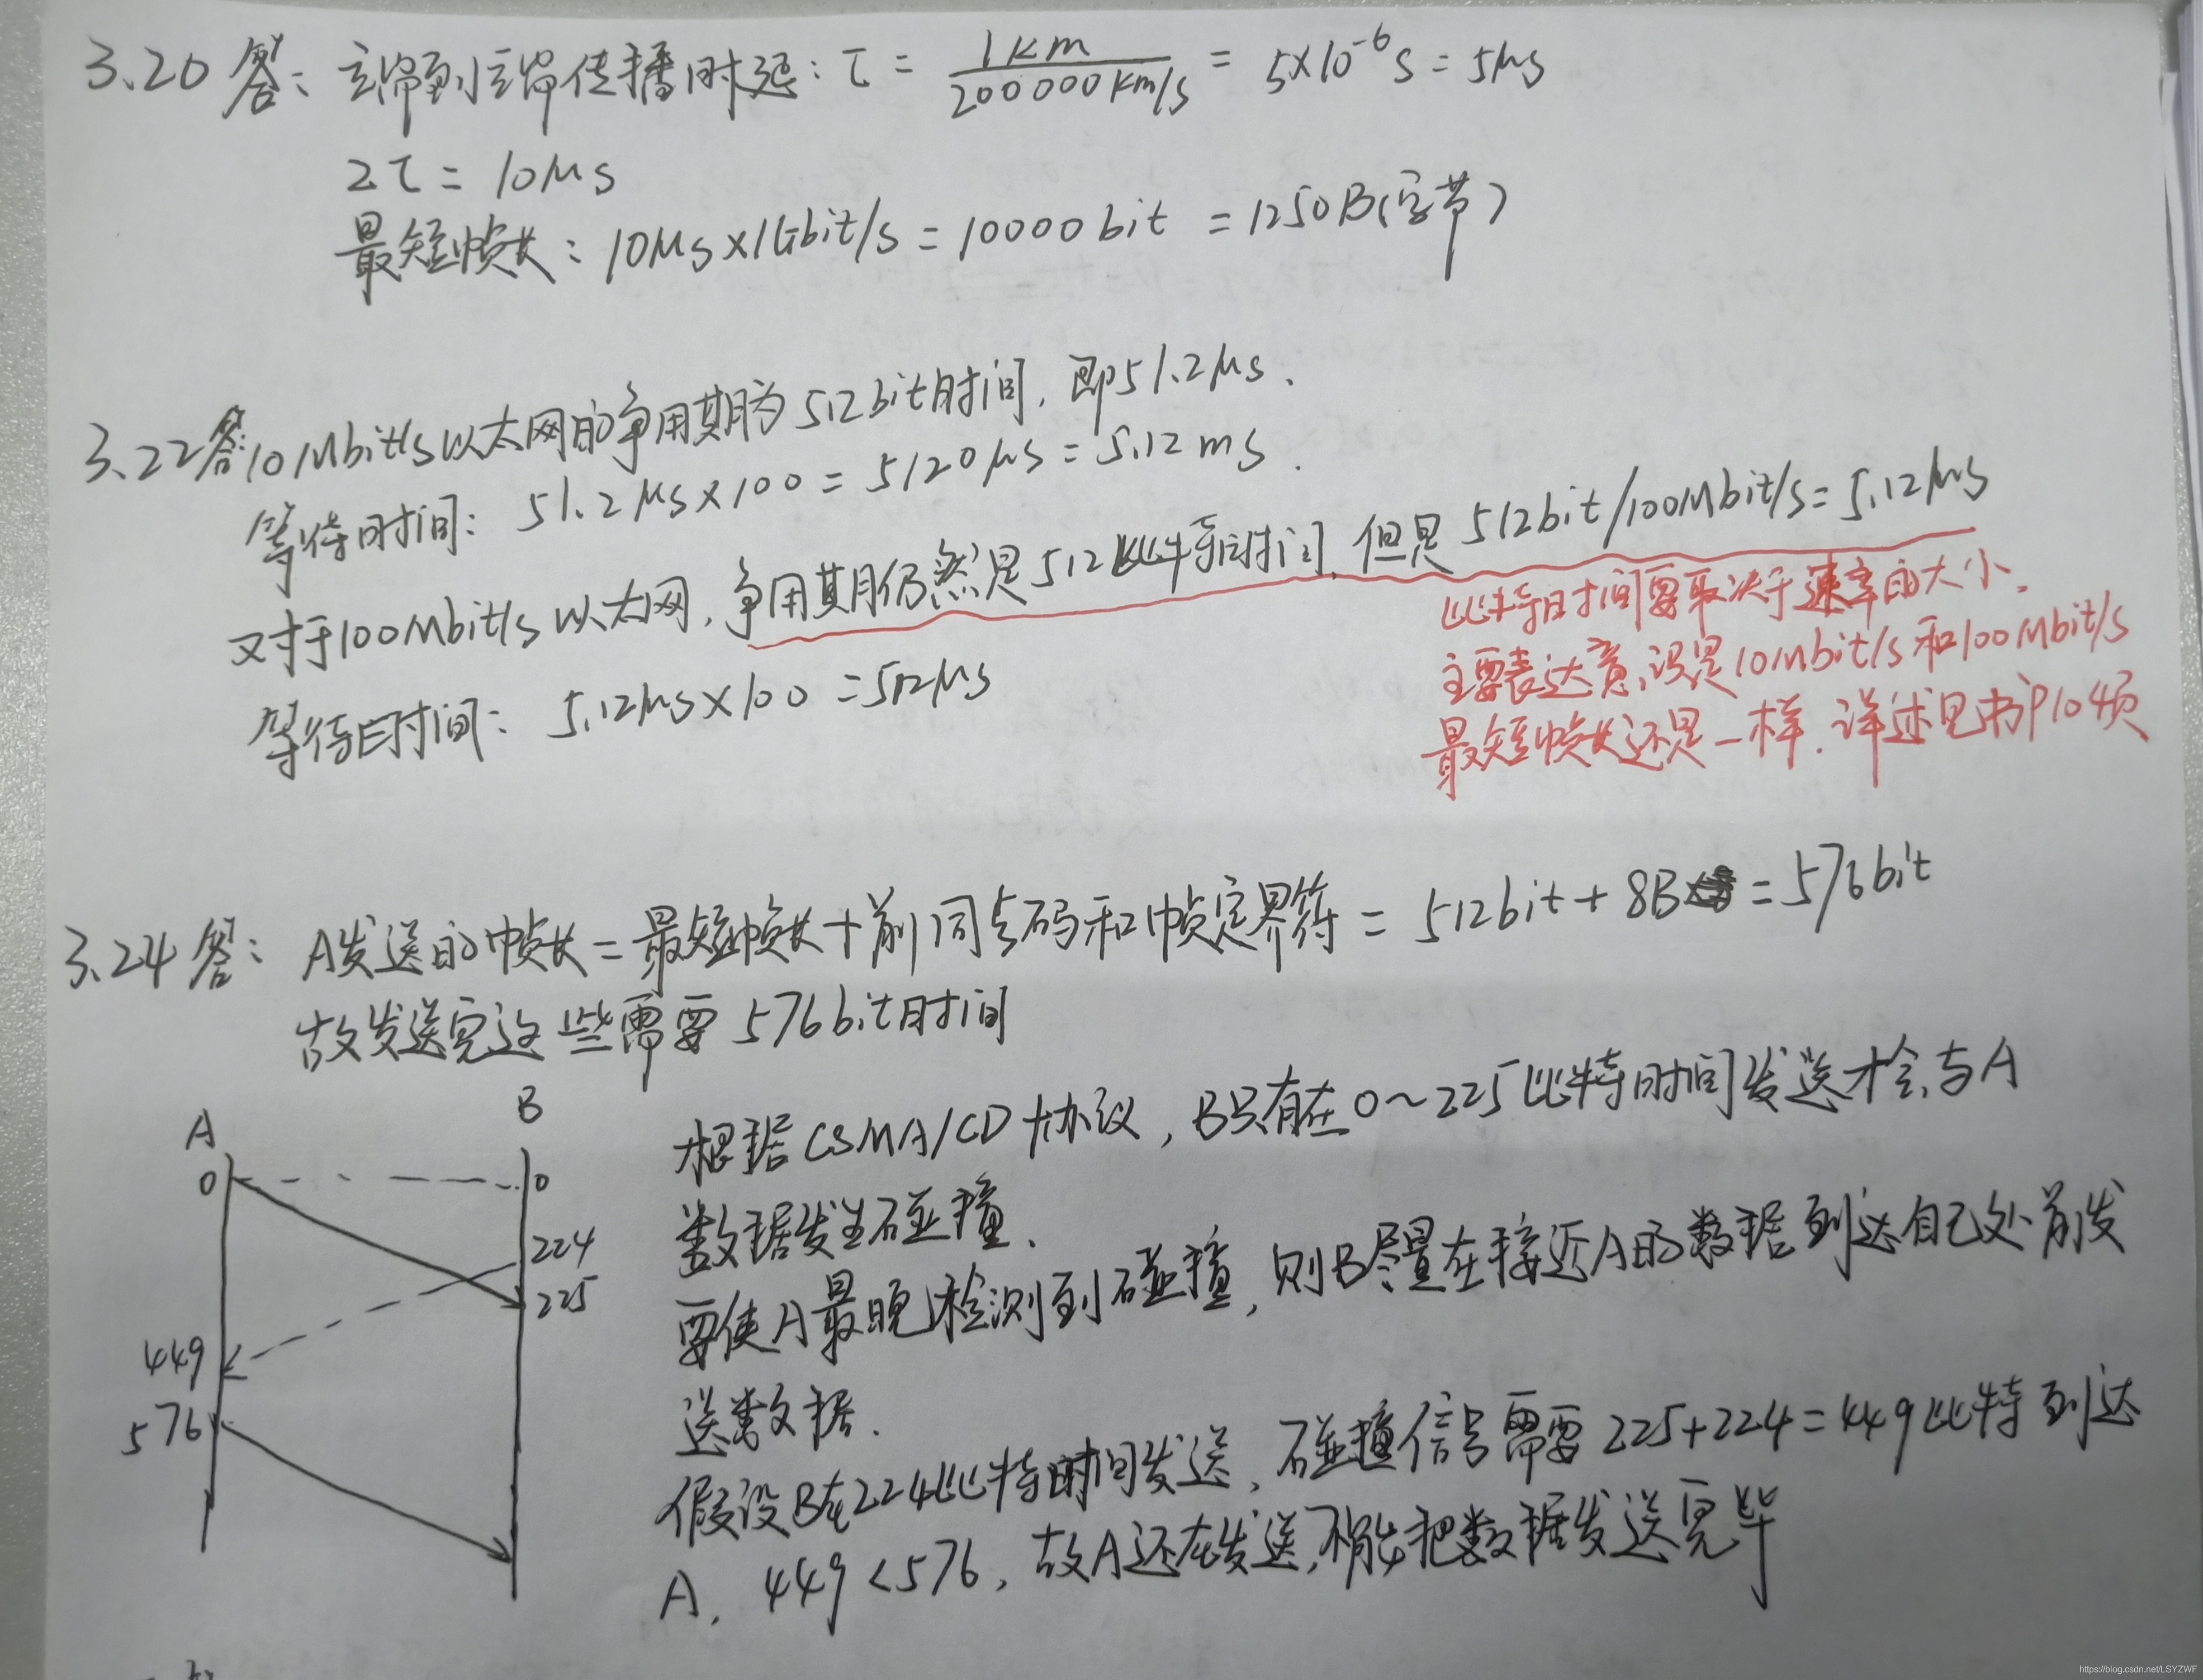 3.20 答: 主端到主端传播时延: τ = 1km / 200000km/s = 5×10⁻⁶s = 5μs
2τ = 10μs
最短帧长: 10μs×1Gbit/s = 10000bit = 1250B(字节)
3.22答: 10Mbit/s以太网的争用期为512bit时间, 即51.2μs.
等待时间: 51.2μs×100 = 5120μs = 5.12ms.
又对于100Mbit/s以太网, 争用期仍然是512比特时间, 但是 512bit/100Mbit/s = 5.12μs
等待时间: 5.12μs×100 = 512μs
比特时间要取决于速率的大小.
主要表达意识是10Mbit/s和100Mbit/s
最短帧长还是一样. 详述见书P104页
3.24 答: A发送的帧长 = 最短帧长 + 前同步码和帧定界符 = 512bit + 8B = 576bit
故发送完这些需要 576bit时间
根据CSMA/CD协议, B只有在0~225比特时间发送才会与A
数据发生碰撞.
要使A最晚检测到碰撞, 则B尽量在接近A的数据到达自己处前发
送数据.
假设B在224比特时间发送, 碰撞信号需要 225+224=449比特到达
A. 449<576, 故A还在发送, 不能把数据发送完毕
A B
0 0
224
225
449
576
https://blog.csdn.net/LSYZWF